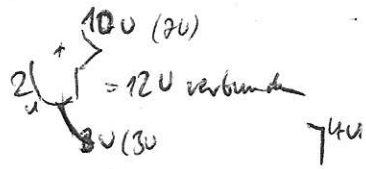 10 U (2U)
2U = 12 U verbunden
8U (3U
74U